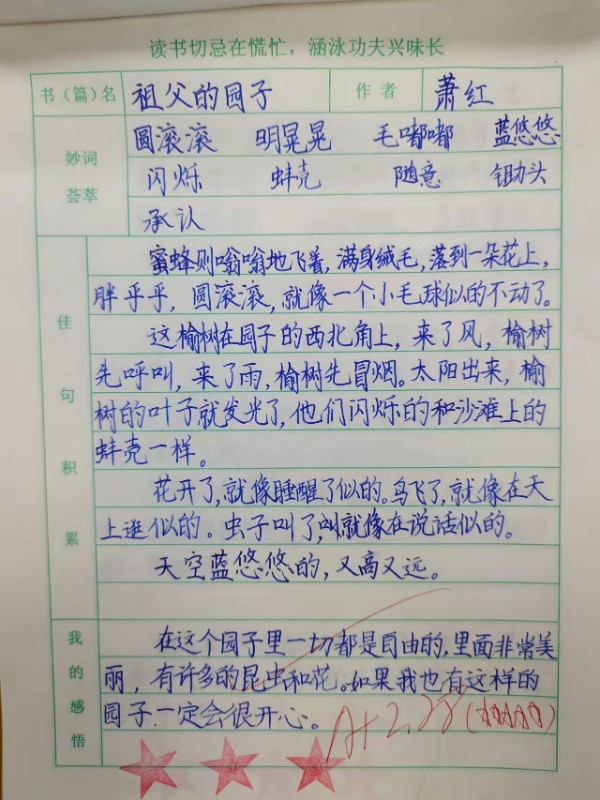 读书切忌在慌忙，涵泳功夫兴味长
书（篇）名 祖父的园子 作者 萧红
妙词荟萃
圆滚滚 明晃晃 毛嘟嘟 蓝悠悠
闪烁 蚌壳 随意 锄头
承认
佳句积累
蜜蜂则嗡嗡地飞着，满身绒毛，落到一朵花上，
胖乎乎，圆滚滚，就像一个小毛球似的不动了。
这榆树在园子的西北角上，来了风，榆树
先呼叫，来了雨，榆树先冒烟。太阳出来，榆
树的叶子就发光了，他们闪烁的和沙滩上的
蚌壳一样。
花开了，就像睡醒了似的。鸟飞了，就像在天
上逛似的。虫子叫了，就像在说话似的。
天空蓝悠悠的，又高又远。
我的感悟
在这个园子里一切都是自由的，里面非常美
丽，有许多的昆虫和花。如果我也有这样的
园子一定会很开心。
A+ 2.28